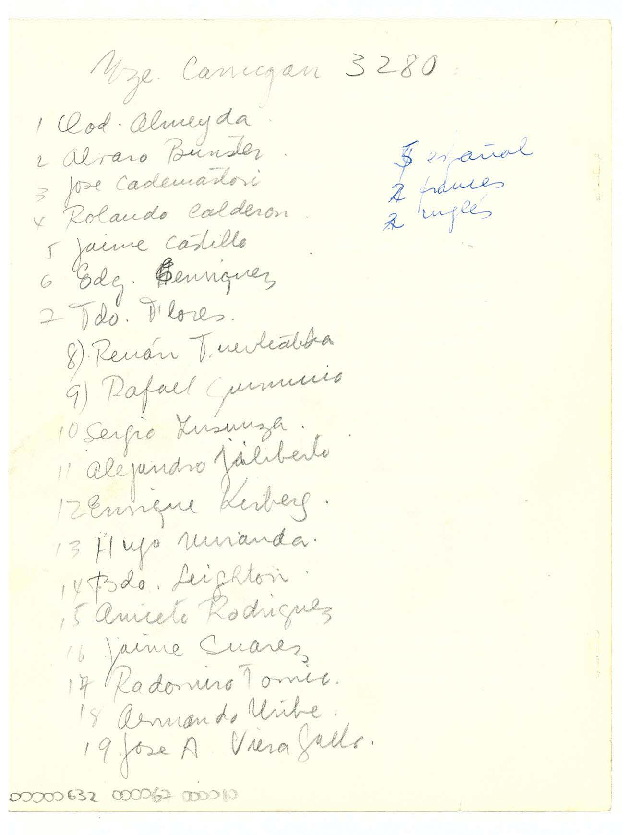 Mze. Carrigan 3280
1 Clod. Almeyda
2 Alvaro Bunster
3 Jose Cademártori
4 Rolando Calderon
5 Jaime Castillo
6 Edg. Henriquez
7 Fdo. Flores.
8) Renán Fuentealba
9) Rafael Gumucio
10 Sergio Insunza.
11 Alejandro Jiliberto
12 Enrique Kirberg.
13 Hugo Miranda.
14 Bdo. Leighton
15 Aniceto Rodriguez
16 Jaime Suarez
17 Radomiro Tomic.
18 Armando Uribe
19 Jose A Viera Gallo.
5 español
2 frances
2 inglés
00000632 000062 000010